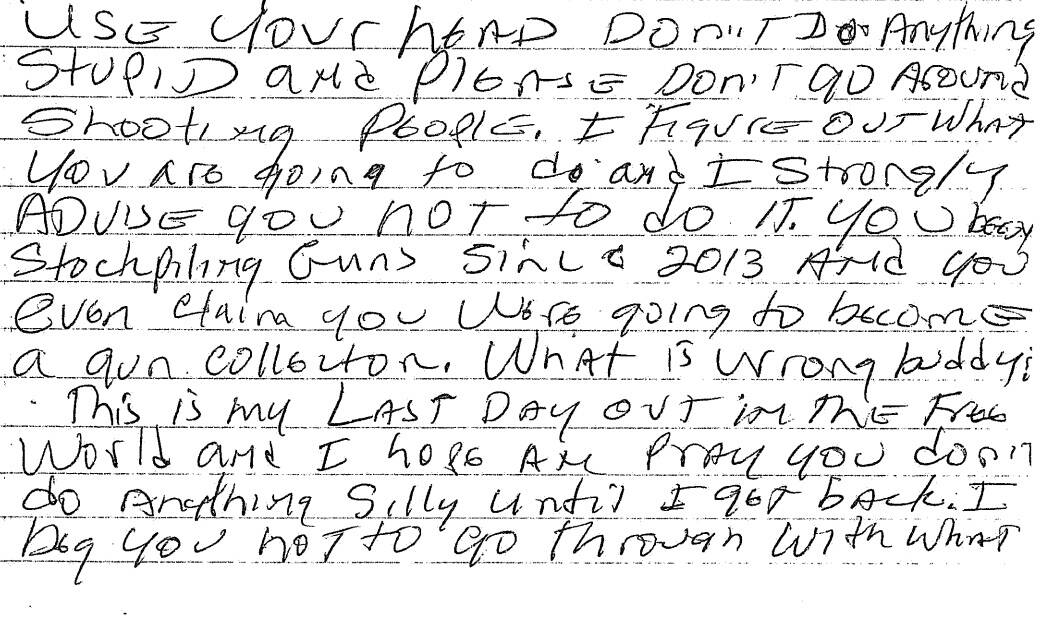 USE YOUr hEAD DON'T Do Anything
STUPID and PlEASE DON'T go Around
Shooting PEOPlE. I FigurE OUT What
You are going to do and I Strongly
ADVISE you NOT to do IT. YOU been
Stockpiling Guns Since 2013 And you
even claim you Were going to becomE
a gun collector. What is wrong buddy?
This is my LAST DAY OUT in THE Free
World and I hope An Pray you don't
do Anything Silly until I get back. I
beg you NOT to go through With What